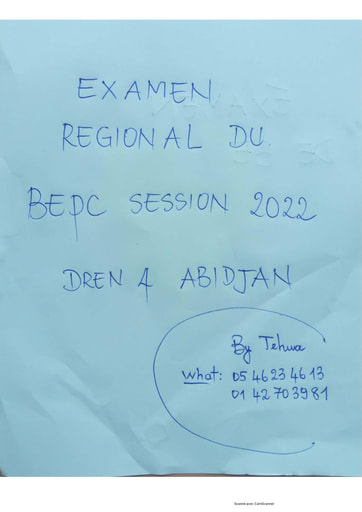 EXAMEN
REGIONAL DU
BEPC SESSION 2022
DREN 4 ABIDJAN
By Tehua
What: 05 46 23 46 13
01 42 70 39 81
Scanné avec CamScanner